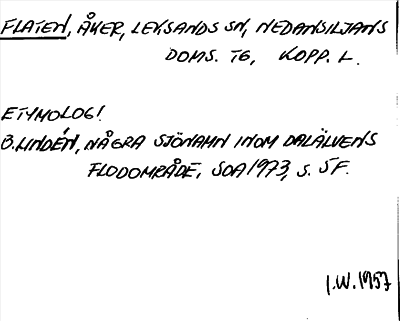 FLATEN, ÅKER, LEKSANDS SN, NEDANSILJANS
DOMS. TG, KOPP. L.
ETYMOLOGI
B. LINDÉN, NÅGRA SJÖNAMN INOM DALÄLVENS
FLODOMRÅDE, SOÅ 1973, S. 5F.
I.W. 1957